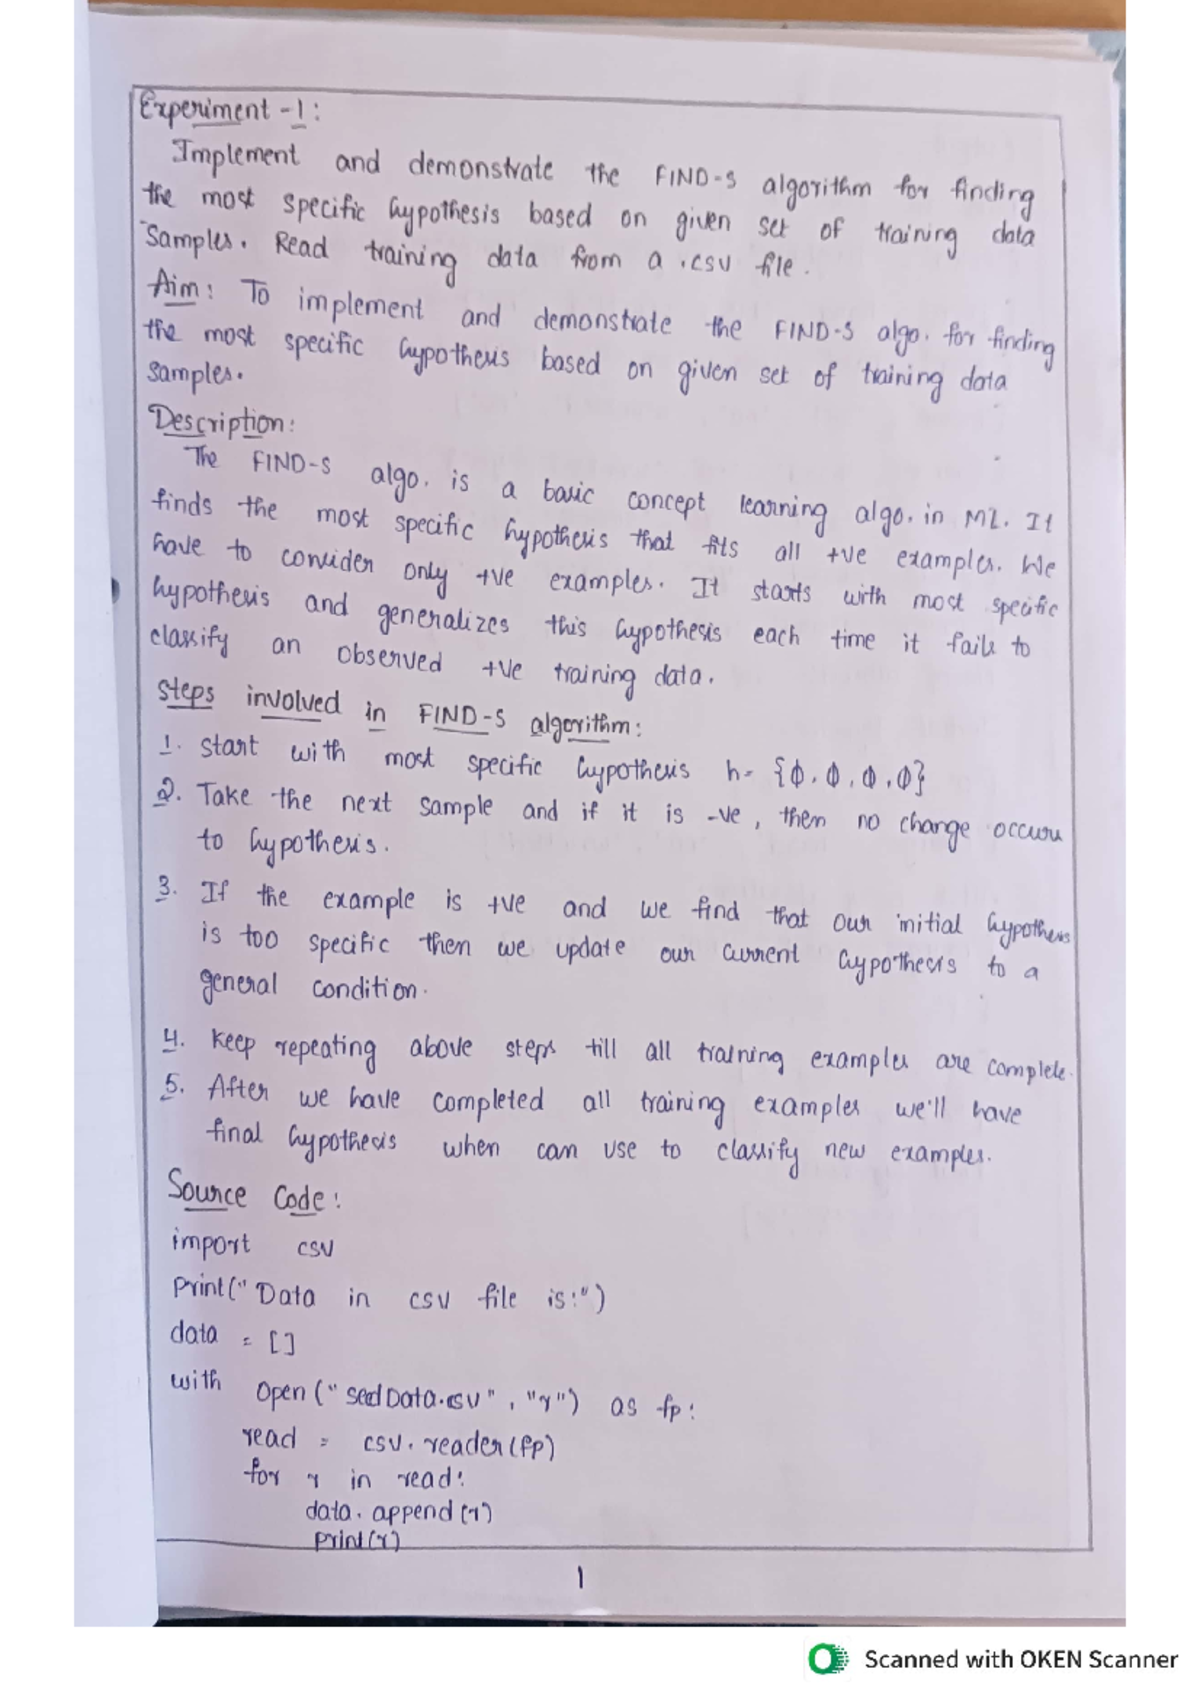 Experiment -1:
Implement and demonstrate the FIND-S algorithm for finding
the most specific hypothesis based on given set of training data
samples. Read training data from a .csv file.
Aim: To implement and demonstrate the FIND-S algo. for finding
the most specific hypothesis based on given set of training data
samples.
Description:
The FIND-S algo. is a basic concept learning algo. in ML. It
finds the most specific hypothesis that fits all +ve examples. We
have to consider only +ve examples. It starts with most specific
hypothesis and generalizes this hypothesis each time it fails to
classify an observed +ve training data.
Steps involved in FIND-S algorithm:
1. start with most specific hypothesis h= {Φ, Φ, Φ, Φ}
2. Take the next sample and if it is -ve, then no change occurs
to hypothesis.
3. If the example is +ve and we find that our initial hypothesis
is too specific then we update our current hypothesis to a
general condition.
4. Keep repeating above steps till all training examples are complete.
5. After we have completed all training examples we'll have
final hypothesis when can use to classify new examples.
Source Code:
import csv
print("Data in csv file is:")
data = []
with open("seedData.csv", "r") as fp:
read = csv.reader(fp)
for r in read:
data.append(r)
print(r)
1
Scanned with OKEN Scanner